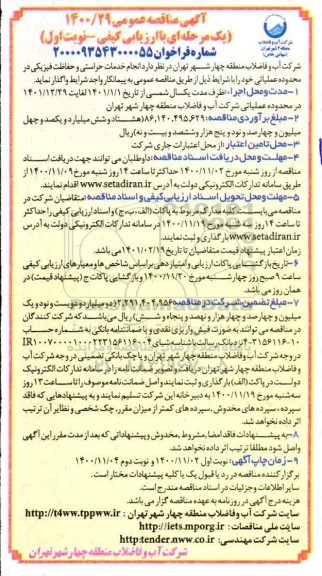 آگهی مناقصه عمومی ۱۴۰۰/۲۹
(یک مرحله‌ای با ارزیابی کیفی - نوبت اول)
شماره فراخوان ۲۰۰۰۰۹۳۵۴۳۰۰۰۰۵۵
شرکت آب و فاضلاب
منطقه ۴ شهر تهران
(سهامی خاص)
شرکت آب و فاضلاب منطقه چهار شهر تهران در نظر دارد انجام خدمات حراستی و حفاظت فیزیکی در
محدوده عملیاتی خود را با شرایط ذیل از طریق مناقصه عمومی به پیمانکار واجد شرایط واگذار نماید.
۱- مدت و محل اجرا: ظرف مدت یکسال شمسی از تاریخ ۱۴۰۱/۱/۱ لغایت ۱۴۰۱/۱۲/۲۹
در محدوده عملیاتی شرکت آب و فاضلاب منطقه چهار شهر تهران
۲- مبلغ برآوردی مناقصه: ۸۶,۱۴۰,۴۹۵,۶۲۹ (هشتاد و شش میلیارد و یکصد و چهل
میلیون و چهارصد و نود و پنج هزار و ششصد و بیست و نه) ریال
۳- محل تامین اعتبار: از محل اعتبارات جاری شرکت
۴- مهلت و محل دریافت اسناد مناقصه: داوطلبان می توانند جهت دریافت اسناد
مناقصه از روز شنبه مورخ ۱۴۰۰/۱۱/۰۲ حداکثر تا ساعت ۱۴ روز شنبه مورخ ۱۴۰۰/۱۱/۰۹ از
طریق سامانه تدارکات الکترونیکی دولت به آدرس www.setadiran.ir اقدام نمایند.
۵- مهلت و محل تحویل اسناد ارزیابی کیفی و اسناد مناقصه: متقاضیان شرکت در
مناقصه می‌بایست کلیه مدارک مربوط به پاکات (الف، ب، ج) و اسناد ارزیابی کیفی را حداکثر
تا ساعت ۱۴ روز سه شنبه مورخ ۱۴۰۰/۱۱/۱۹ در سامانه تدارکات الکترونیکی دولت به آدرس
www.setadiran.ir بارگذاری و ثبت نمایند.
زمان اعتبار پیشنهاد قیمت متقاضیان تا تاریخ ۱۴۰۱/۰۲/۱۹ می باشد.
۶- تاریخ بازگشایی پاکات ارزیابی و امتیازدهی براساس شاخص ها و معیارهای ارزیابی کیفی
ساعت ۹ صبح روز چهارشنبه مورخ ۱۴۰۰/۱۱/۲۰ و بازگشایی پاکات ج (پیشنهاد قیمت) در
همان روز می باشد.
۷- مبلغ تضمین شرکت در مناقصه ۲,۲۹۱,۴۰۴,۹۵۶ (دو میلیارد و دویست و نود و یک
میلیون و چهارصد و چهار هزار و نهصد و پنجاه و شش) ریال می باشد که شرکت کنندگان
در مناقصه می توانند به صورت فیش واریزی نقدی و یا ضمانتنامه بانکی به شماره حساب
در وجه شرکت آب و فاضلاب منطقه چهار شهر تهران و یا چک بانکی تضمینی در وجه شرکت آب
و فاضلاب منطقه چهار شهر تهران، دریافت و تصویر ضمانت نامه را در سامانه تدارکات الکترونیک
دولت در پاکت (الف) بارگذاری و ثبت نمایند و اصل ضمانت نامه موصوف را تا ساعت ۱۳ روز
سه شنبه مورخ ۱۴۰۰/۱۱/۱۹ به دبیرخانه این شرکت تسلیم نمایند و به پیشنهادهایی که فاقد
سپرده، سپرده های مخدوش، سپرده های کمتر از میزان مقرر، چک شخصی و نظایر آن ترتیب
اثر داده نخواهد شد.
۸- به پیشنهادات فاقد امضا، مشروط، مخدوش و پیشنهاداتی که بعد از مدت مقرر این آگهی
واصل شود مطلقا ترتیب اثر داده نخواهد شد.
۹- زمان چاپ آگهی: نوبت اول ۱۴۰۰/۱۱/۰۲ و نوبت دوم ۱۴۰۰/۱۱/۰۴
برگزار کننده مناقصه در رد یا قبول یک یا کلیه پیشنهادات مختار است.
سایر اطلاعات و جزئیات در اسناد مناقصه مندرج است.
هزینه درج آگهی در روزنامه به عهده مناقصه گزار می باشد.
سایت شرکت آب و فاضلاب منطقه چهار شهر تهران: http://t4ww.tppww.ir
سایت ملی مناقصات: http://iets.mporg.ir
سایت شرکت مهندسی: http:tender.nww.co.ir
شرکت آب و فاضلاب منطقه چهار شهر تهران